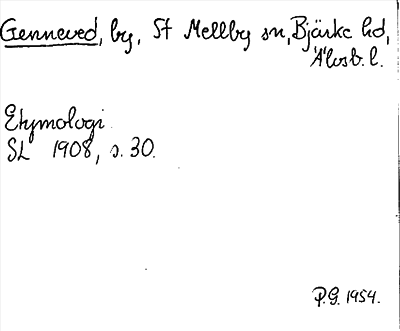 Genneved, by, St Mellby sn, Bjärke hd,
Älvsb. l.
Etymologi
SL 1908, s. 30.
P.G. 1954.